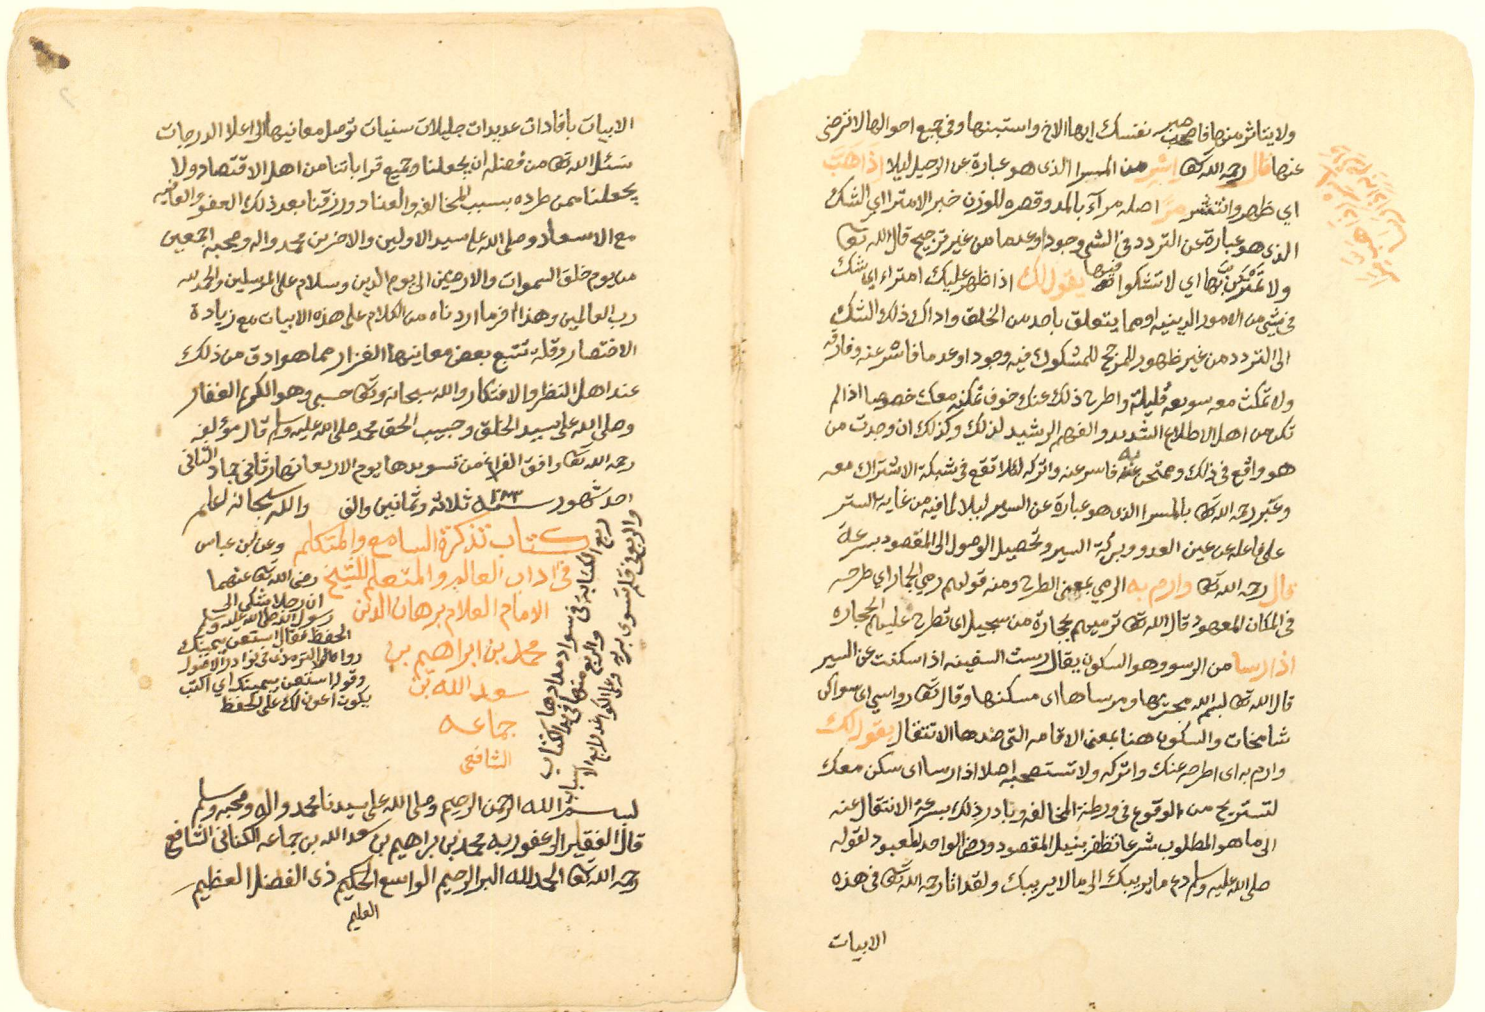 ولا يتاثر منها فاصحب صبر نفسك ايها الاخ واستبنها وفي جميع احوالها لا ترضى
عنها قال رحمه الله تعا اسر من المسرا الذى هو عبارة عن الرحيل ليلا اذا هَبَّ
اي ظهر وانتشر مِرًا اصله مرآء بالمد وقصره للوزن خبر الامترا اي الشك
الذى هو عبارة عن التردد في الشي وجودا وعدما من غير ترجيح قال الله تعا
ولا تَمْتَرُنَّ بها اي لا تشكوا فيها يقول لك اذا ظهر عليك امتراء اي شك
في شي من الامور الدينيه او مما يتعلق باحد من الخلق واداك ذلك الشك
الى التردد من غير ظهور المرجح للمشكوك فيه وجودا وعدما فاسر عنه وفارقه
ولا تمكث معه سويعه قليلة واطرح ذلك عنك خوف تمكنه معك خصوصا اذا لم
تكن من اهل الاطلاع الشديد والفهم الرشيد لذلك وكذلك ان وجدت من
هو واقع في ذلك وممتحن به فاسر عنه واتركه لئلا تقع في شبكة الاشتراك معه
وعبّر رحمه الله تعا بالمسرا الذى هو عبارة عن السير ليلا لما فيه من غاية الستر
على فاعله عن عين العدو وبركة السير وتحصيل الوصول الى المقصود بسرعة
قال رحمه الله تعا وارم به الرمي بمعنى الطرح ومنه قولهم رمي الجمار اي طرحه
في المكان المعهود قال الله تعا ترميهم بحجارة من سجيل اي تطرح عليهم الحجاره
اذا رسا من الرسو وهو السكون يقال رست السفينه اذا سكنت عن السير
قال الله تعا بسم الله مجريها ومرساها اى مسكنها وقال تعا رواسي اى سواكن
شامخات والسكون هنا بمعنى الاقامه التى ضدها الانتقال يقول لك
وارم به اى اطرحه عنك واتركه ولا تستصحبه اصلا اذا رسا اى سكن معك
لتستريح من الوقوع في ورطة المخالفه وبادر ذلك بسرعة الانتقال عنه
الى ما هو المطلوب شرعا تظفر بنيل المقصود ورضى الواحد المعبود لقوله
صلى الله عليه وسلم دع ما يريبك الى ما لا يريبك ولقد اتا رحمه الله تعا في هذه
الابيات
الابيات بافادات عديدات جليلات سنيات توصل معانيها الى اعلا الدرجات
نسئل الله تعا من فضله ان يجعلنا وجميع قراباتنا من اهل الاقتصاد ولا
يجعلنا ممن طرده بسبب المخالفه والعناد ورزقنا بعد ذلك العفو والعافيه
مع الاسعاد وصلى الله على سيد الاولين والاخرين محمد واله وصحبه اجمعين
من يوم خلق السموات والارضين الى يوم الدين وسلام على المرسلين والحمد لله
رب العالمين وهذا اخر ما اردناه من الكلام على هذه الابيات مع زيادة
الاختصار وقلة تتبع بعض معانيها الغزار مما هو ادق من ذلك
عند اهل النظر والافتكار والله سبحانه وتعا حسبي وهو الكريم الغفار
وصلى الله على سيد الخلق وحبيب الحق محمد صلى الله عليه وسلم قال مؤلفه
رحمه الله تعا وافق الفراغ من تسويدها يوم الاربعا نهار ثاني جماد الثاني
احد شهور سنة ١٠٨٣ ثلاثه وثمانين والف والله سبحانه اعلم
كتاب تذكرة السامع والمتكلم
في اداب العالم والمتعلم للشيخ
الامام العلام برهان الدين
محمد بن ابراهيم بن
سعد الله بن
جماعه
الشافعي
وعن ابن عباس
رضى الله تعا عنهما
ان رجلا شكى الى
رسول الله صلى الله عليه وسلم
الحفظ فقال استعن بيمينك
رواه الترمذى في نوادر الاصول
وقوله استعن بيمينك اي اكتب
يكون اعون لك على الحفظ
ربع الكتابة في سواد مدادها
والربع
بسم الله الرحمن الرحيم وصلى الله على سيدنا محمد واله وصحبه وسلم
قال الفقير الى عفو ربه محمد بن ابراهيم بن سعد الله بن جماعه الكناني الشافعي
رحمه الله تعا الحمد لله البر الرحيم الواسع الحكيم ذى الفضل العظيم
العليم